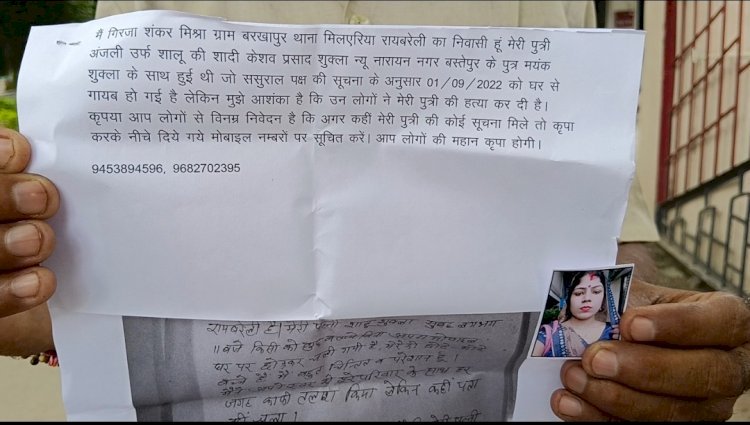 मै गिरजा शंकर मिश्रा ग्राम बरखापुर थाना मिलएरिया रायबरेली का निवासी हूं मेरी पुत्री
अंजली उर्फ शालू की शादी केशव प्रसाद शुक्ला न्यू नारायन नगर बस्तेपुर के पुत्र मयंक
शुक्ला के साथ हुई थी जो ससुराल पक्ष की सूचना के अनुसार 01/09/2022 को घर से
गायब हो गई है लेकिन मुझे आशंका है कि उन लोगों ने मेरी पुत्री की हत्या कर दी है।
कृपया आप लोगों से विनम्र निवेदन है कि अगर कहीं मेरी पुत्री की कोई सूचना मिले तो कृपा
करके नीचे दिये गये मोबाइल नम्बरों पर सूचित करें। आप लोगों की महान कृपा होगी।
9453894596, 9682702395
रायबरेली है। मेरी पत्नी
11 बजे किसी को
घर पर छोड़कर चली गयी है
है मै बहुत चिन्तित व परेशान है।
परिवार के साथ हर
जगह काफी तलाश किया लेकिन कहीं पता
नहीं चला।